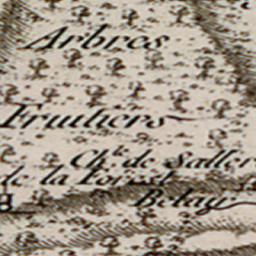 Arbres
Fruitiers
Ch.le de Saller
de la Forest
Belair